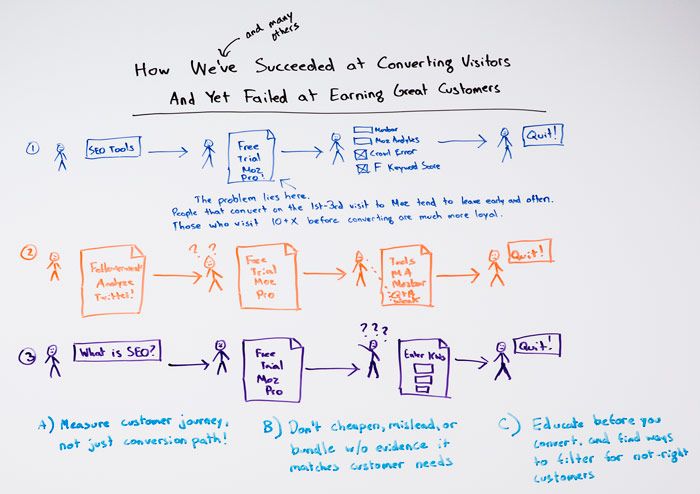 and many
others
How We've Succeeded at Converting Visitors
And Yet Failed at Earning Great Customers
1
SEO Tools
Free
Trial
Moz
Pro!
Mozbar
Moz Analytics
Crawl Error
F Keyword Score
Quit!
The problem lies here.
People that convert on the 1st-3rd visit to Moz tend to leave early and often.
Those who visit 10+X before converting are much more loyal.
2
Followerwonk
Analyze
Twitter!
? ?
Free
Trial
Moz
Pro
Tools
MA
Mozbar
Quit!
3
What is SEO?
Free
Trial
Moz
Pro
? ? ?
Enter KWs
Quit!
A) Measure customer journey,
not just conversion path!
B) Don't cheapen, mislead, or
bundle w/o evidence it
matches customer needs
C) Educate before you
convert, and find ways
to filter for not-right
customers